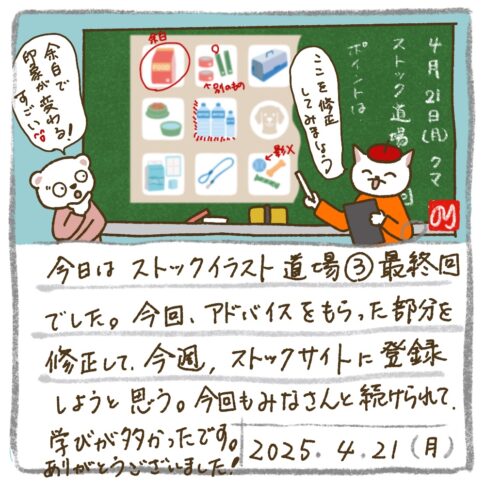 4月21日(月)クマ
ストック道場
ポイントは
余白で
印象が
変わる!
すごい
余白
別のもの
影✕
ここを修正
してみましょう
今日はストックイラスト道場③最終回
でした。今回、アドバイスをもらった部分を
修正して、今週、ストックサイトに登録
しようと思う。今回もみなさんと続けられて、
学びが多かったです。
ありがとうございました!
2025.4.21(月)